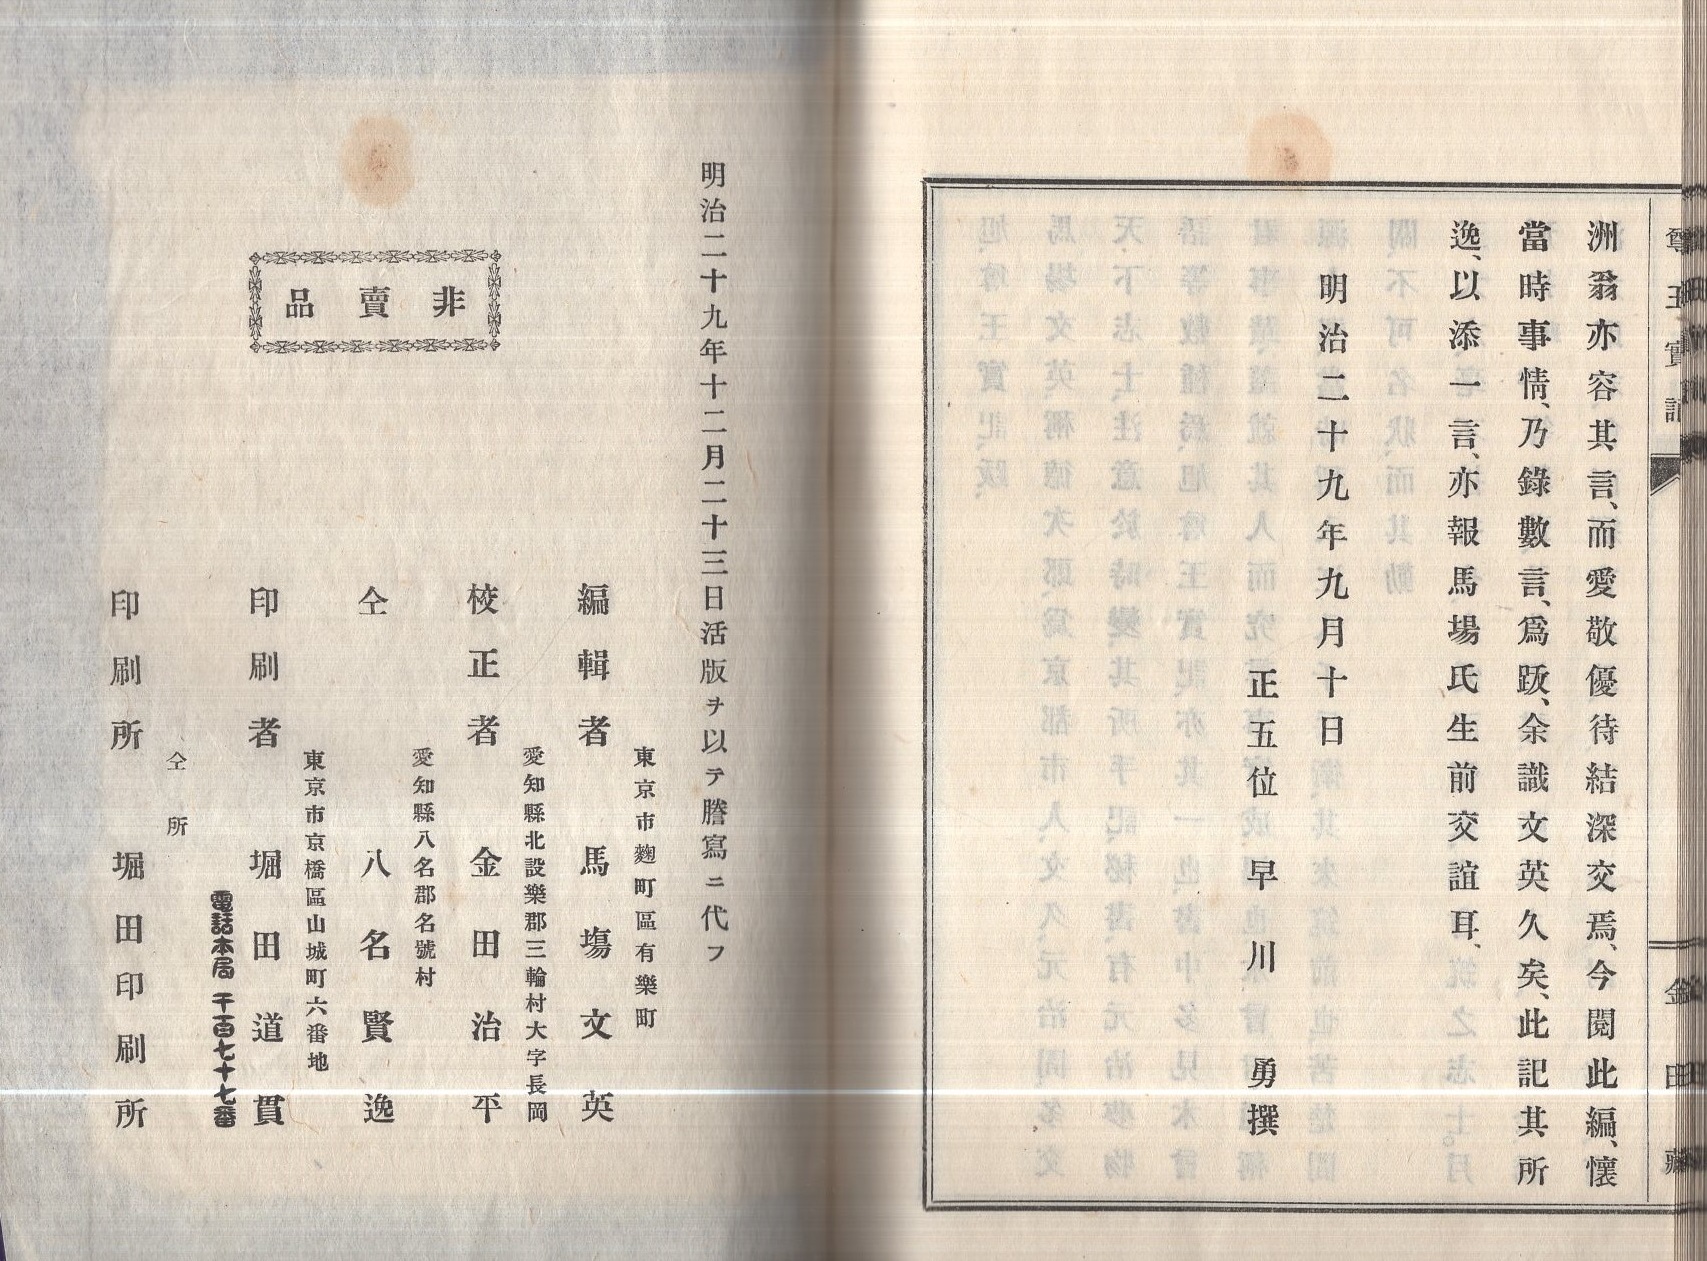 洲翁亦容其言、而愛敬優待結深交焉、今閱此編、懷
當時事情、乃錄數言、爲跋、余識文英久矣、此記其所
逸、以添一言、亦報馬場氏生前交誼耳、
明治二十九年九月十日
正五位早川勇撰
尊王實記
金田藏
明治二十九年十二月二十三日活版ヲ以テ謄寫ニ代フ
東京市麴町區有樂町
編輯者 馬塲文英
愛知縣北設樂郡三輪村大字長岡
校正者 金田治平
愛知縣八名郡名號村
仝 八名賢逸
東京市京橋區山城町六番地
印刷者 堀田道貫
電話本局千百七十七番
仝所
印刷所 堀田印刷所
非賣品